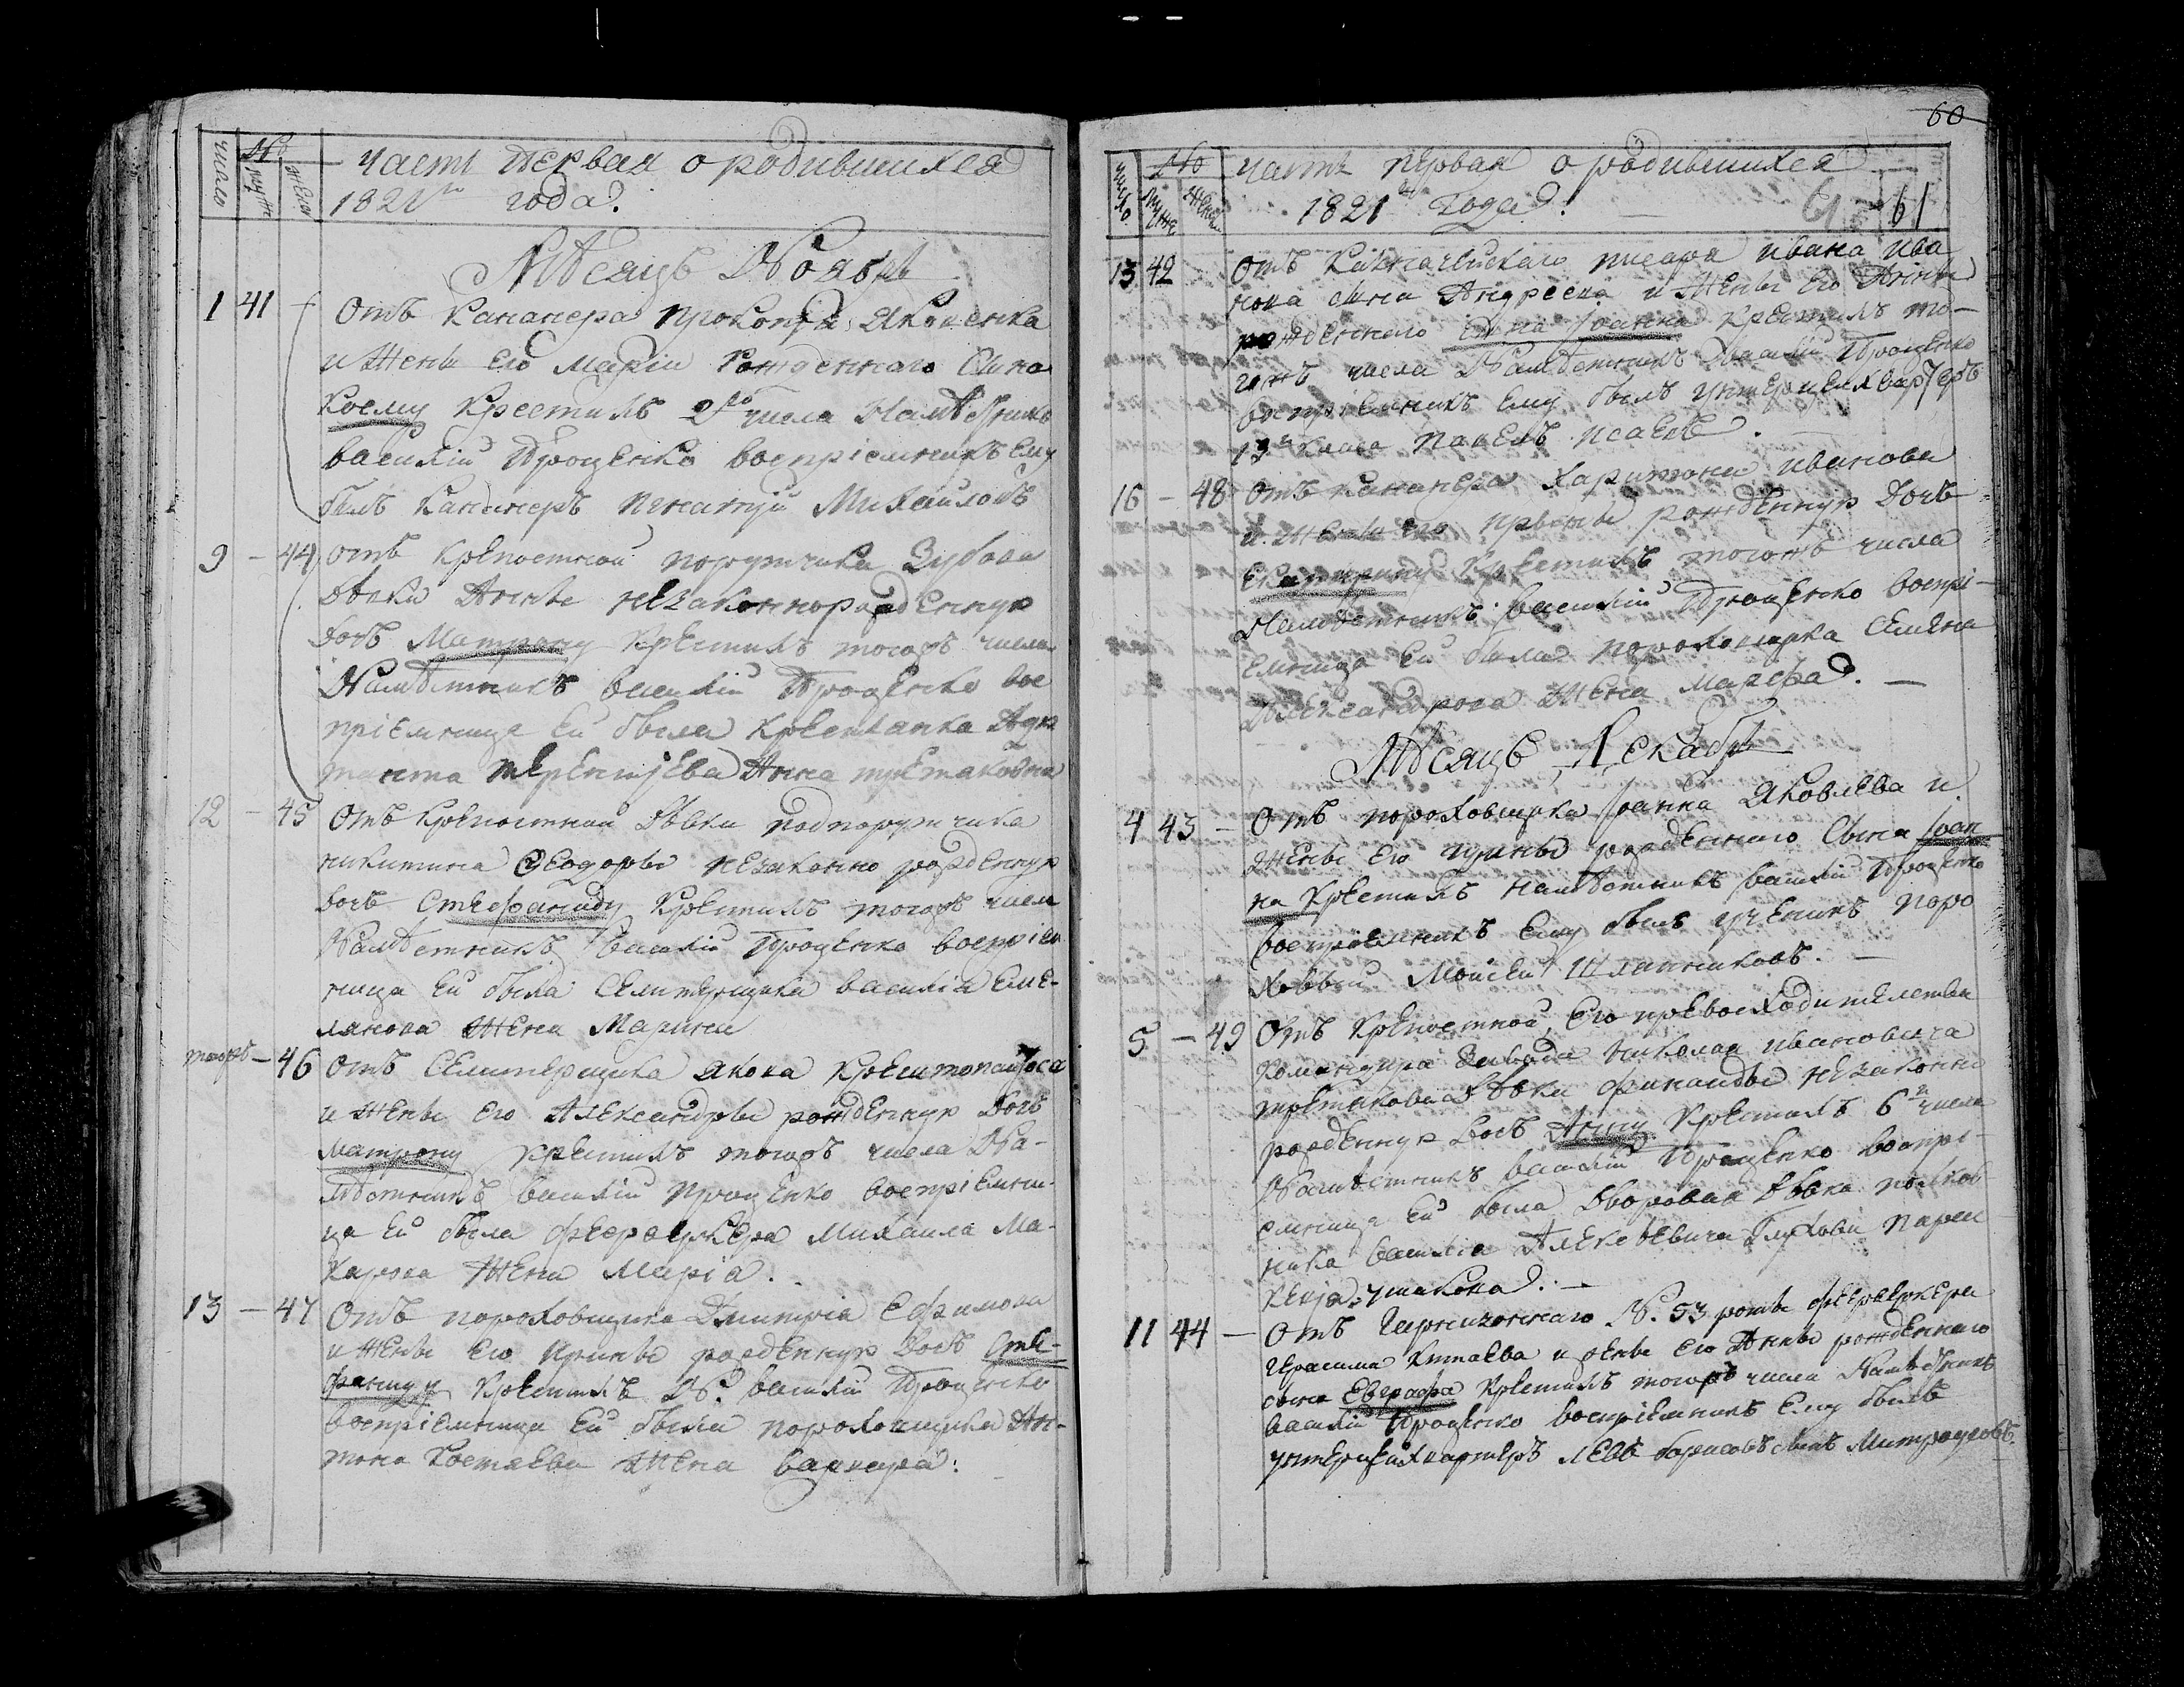 число № муж жен
Часть первая о родившихся
1821го года.
Месяцъ Ноябрь
1 41 Отъ Кананера Прокофья Яковенка
и Жены его Маріи Рожденнаго Сына
Козму Крестилъ 2го числа Намѣстникъ
Василій Проценко воспріемникъ ему
былъ Кананеръ Игнатій Михайловъ
9 – 44 Отъ Крепостной порутчика Зубова
Дѣвки Анны незаконнорожденную
Дочь Матрону Крестилъ тогожъ числа
Намѣстникъ Василій Проценко вос
пріемница ей была Крестьянка Адъю
танта Терентьева Анна Третьяковна
12 – 45 Отъ Крепостной Дѣвки подпорутчика
Никитина Ѳеодоры незаконно рожденную
дочь Стефаниду Крестилъ тогожъ числа
Намѣстникъ Василій Проценко воспріем
ница ей была Селитерщика Василія Еме-
лянова Жена Марина
тогожъ – 46 Отъ Селитерщика Якова
и Жены его Александры рожденную Дочь
Матрону Крестилъ тогожъ числа На-
мѣстникъ Василій Проценко воспріемни-
ца ей была фееръверкера Михаила Ма-
карова Жена Марія.
13 – 47 Отъ пороховщика Дмитрія Ефимова
и Жены его Ирины рожденную Дочь Сте-
фаниду Крестилъ Н. Василій Проценко
воспріемница ей была пороховщика Ан-
тона Костяева Жена Варвара.
60
число № муже женск
Часть первая о родившихся
1821го Года.
61 61
13 42 Отъ Казначейскаго писаря Ивана Ива
нова сына Андреева и Жены его Анны
рожденнаго сына Іоанна Крестилъ то-
гожъ числа Намѣстникъ Василій Проценко
воспріемникъ ему былъ унтерцейхвартеръ
13го класа Павелъ Исаевъ.
16 – 48 Отъ Кананера Харитона Иванова
и Жены его Ирины рожденную Дочь
Екатерину Крестилъ тогожъ числа
Намѣстникъ Василій Проценко воспрі-
емница ей была пороховщика Семена
Александрова Жена Марфа. –
Месяцъ Декабрь
4 43 – Отъ пороховщика Іоанна Яковлева и
Жены его Ирины рожденнаго Сына Іоан
на Крестилъ Намѣстникъ Василій Проценко
воспріемникъ ему былъ ученикъ поро
ховый Моисей Шляпниковъ. –
5 – 49 Отъ Крепостной, его превосходителства
Командира Завода Николая Ивановича
Третьякова Дѣвки незаконно
рожденную Дочь Анну Крестилъ 6го числа
Намѣстникъ Василій Проценко воспрі-
емница ей была Дворовая Дѣвка полков
ника Василія Алексѣевича Глухова Парас
кевія Ушакова. –
11 44 – Отъ Гарнизоннаго №. 53 роты фееръверкера
Герасима Китаева и жены его Анны рожденнаго
сына Евграфа Крестилъ тогожъ числа Намѣстникъ
Василій Проценко воспріемникъ ему былъ
унтерцейхвартеръ Левъ Борисовъ сынъ